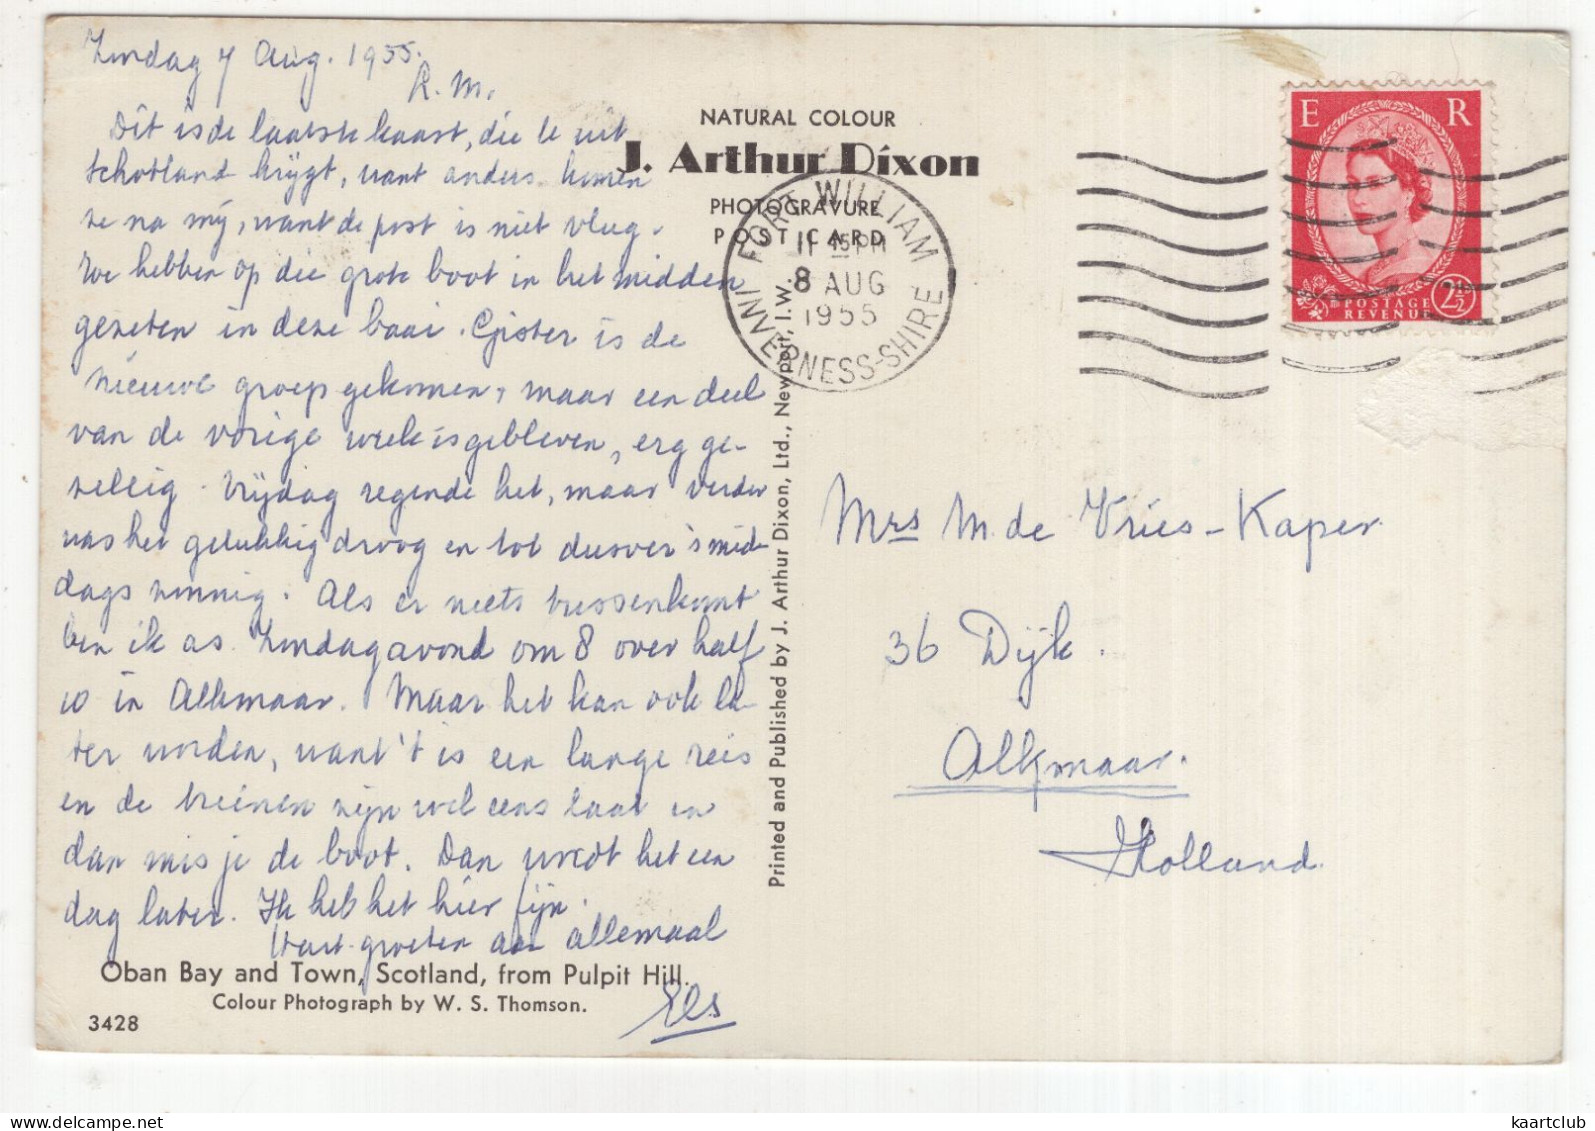 Zondag 7 Aug. 1955.
L.M.
Dit is de laatste kaart, die je uit
Schotland krijgt, want anders komen
ze na mij, want de post is niet vlug.
We hebben op die grote boot in het midden
gezeten in deze baai. Gister is de
nieuwe groep gekomen, maar een deel
van de vorige week is gebleven, erg ge-
zellig. Vrijdag regende het, maar verder
was het gelukkig droog en tot dusver 's mid-
dags zonnig. Als er niets tussenkomt
ben ik as. Zondagavond om 8 over half
10 in Alkmaar. Maar het kan ook la-
ter worden, want 't is een lange reis
en de treinen zijn wel eens laat en
dan mis je de boot. Dan wordt het een
dag later. Ik heb het hier fijn.
Hart. groeten aan allemaal
Els
Oban Bay and Town, Scotland, from Pulpit Hill.
Colour Photograph by W. S. Thomson.
3428
NATURAL COLOUR
J. Arthur Dixon
PHOTOGRAVURE
POST CARD
Printed and Published by J. Arthur Dixon, Ltd., Newport, I.W.
FORT WILLIAM
11 45 PM
8 AUG
1955
INVERNESS-SHIRE
E R
POSTAGE
REVENUE
2½D
Mrs M. de Vries-Kaper
36 Dijk.
Alkmaar.
Holland.
kaartclub